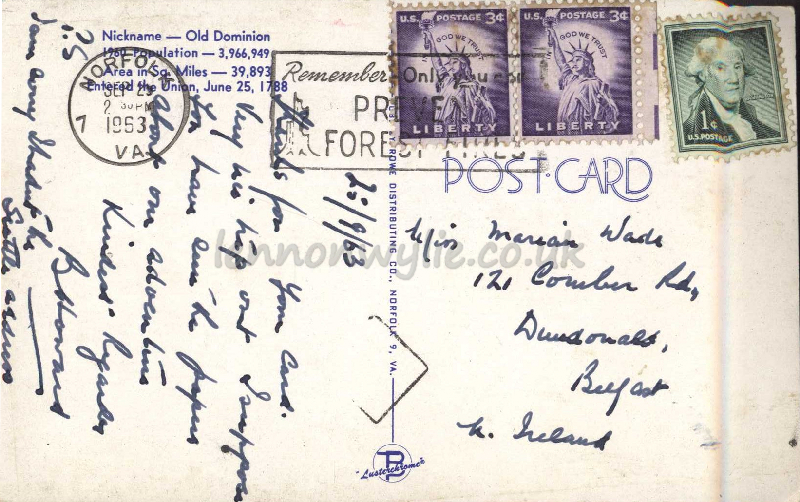 Nickname — Old Dominion
1960 Population — 3,966,949
Area in Sq. Miles — 39,893
Entered the Union, June 25, 1788
NORFOLK
SEP 25
2 30 PM
1963
VA.
7
Remember - Only you can
PREVENT
FOREST FIRES
U.S. POSTAGE 3¢
IN GOD WE TRUST
LIBERTY
U.S. POSTAGE 3¢
IN GOD WE TRUST
LIBERTY
1¢
U.S. POSTAGE
POST CARD
ROWE DISTRIBUTING CO., NORFOLK 9, VA.
"Lusterchrome"
25/9/63
Thanks for your card.
Very his trip out I suppose
You have seen the papers
about our adventure
Kindest regards
B Howard
P.S
I am away
the
Seattle address
Miss Marian Wade
121 Comber Rd,
Dundonald,
Belfast
N. Ireland
lennonwylie.co.uk